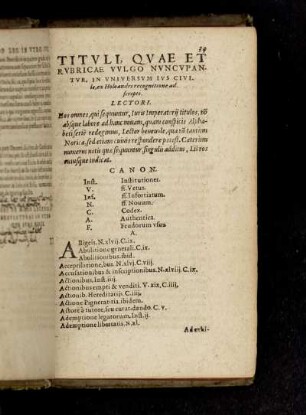 39
TITVLI, QVAE ET
RVBRICAE VVLGO NVNCVPAN-
TVR, IN VNIVERSVM IVS CIVI-
le, ex Holoandri recognitione ad-
scripti.
LECTORI.
Hos omnes, qui sequuntur, Iuris Imperatorij titulos,
absque labore ad hanc nouam, quam conspicis Alpha-
beti serie redegimus, Lector beneuole, quæ tamen
Noricæ, sed etiam cuiuis respondere potest. Cæterum
numerus notis quæ sequuntur singulis additus, Libros
cuiusque indicat.
CANON.
Inst. Institutiones.
V. ff. Vetus.
Inf. ff. Infortiatum.
N. ff Nouum.
C. Codex.
A. Authentica.
F. Feudorum vsus
A.
ABigeis. N. xlvij. C. ix.
Abolitione generali. C. ix.
Abolitionibus. ibid.
Acceptilatione, bus. N. xlvj. C. viij.
Accusationibus & inscriptionibus. N. xlviij. C. ix.
Actionibus. Inst. iiij.
Actionibus empti & venditi. V. xix. C. iiij.
Actionib. Hereditatib. C. iiij
Actione Pigneratitia. ibidem.
Actore à tutore, seu curat. dando. C. v.
Ademptione legatorum. Inst. ij.
Ademptione libertatis. N. xl.